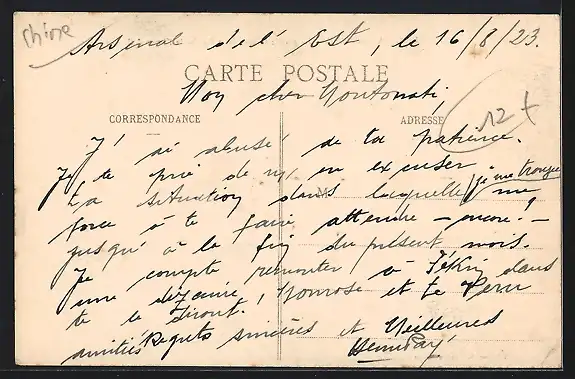 chine
Arsenal de l'Est, le 16/8/23.
CARTE POSTALE
Mon cher
CORRESPONDANCE
ADRESSE
12 +
J'ai abusé de ta patience.
Je te prie de m'en excuser
La situation dans laquelle je me trouve me
force à te faire attendre - encore! -
jusqu'à la fin du présent mois.
Je compte remonter à Pékin dans
une dizaine, et le
te le diront.
Regrets sincères et Meilleures
amitiés